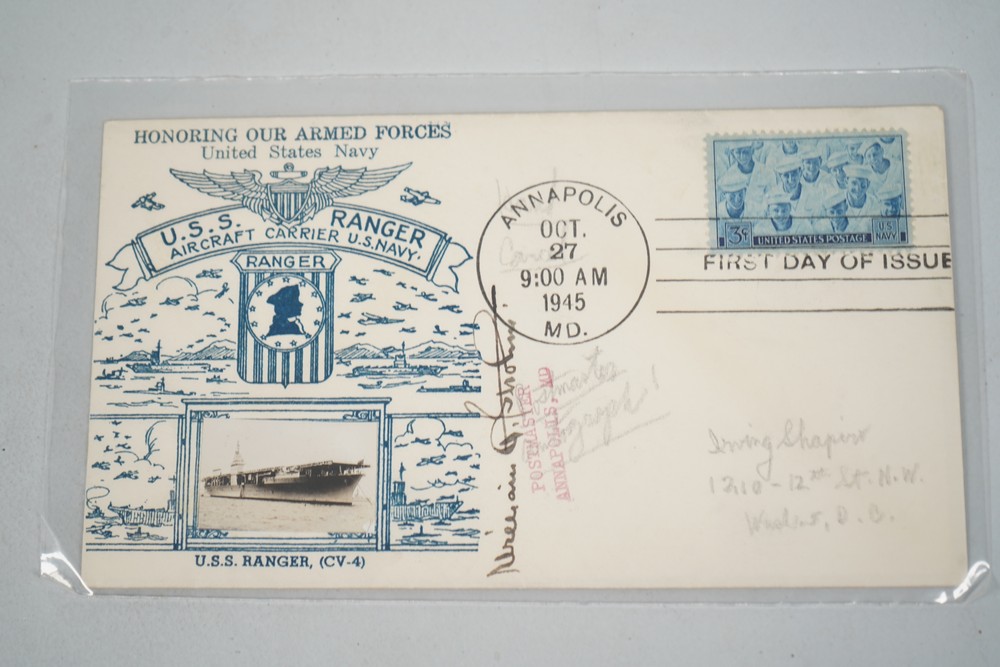 HONORING OUR ARMED FORCES
United States Navy
U.S.S. RANGER
AIRCRAFT CARRIER U.S. NAVY.
RANGER
U.S.S. RANGER, (CV-4)
ANNAPOLIS
OCT.
27
9:00 AM
1945
MD.
3¢ UNITED STATES POSTAGE U.S. NAVY
FIRST DAY OF ISSUE
William
POSTMASTER
ANNAPOLIS, MD
Postmaster
autograph!
Irving Shapiro
1210-12th St. N.W.
D.C.